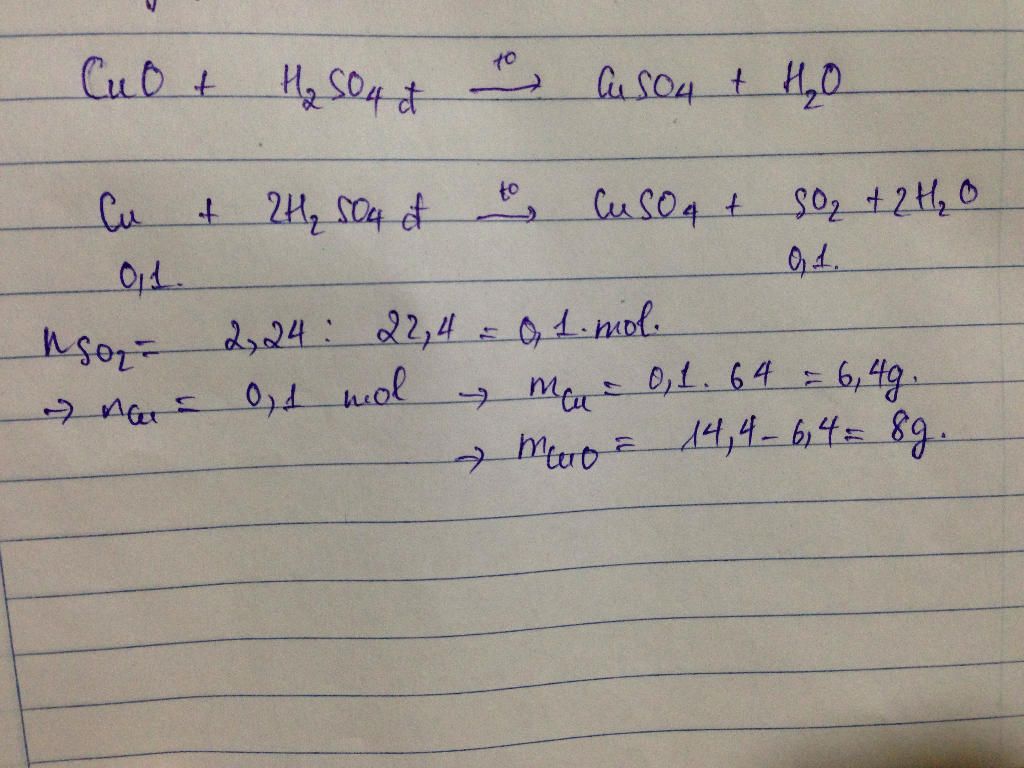 CuO + H₂SO₄ đ →(t⁰) CuSO₄ + H₂O
Cu + 2H₂SO₄ đ →(t⁰) CuSO₄ + SO₂ + 2H₂O
0,1. 0,1.
nSO₂ = 2,24 : 22,4 = 0,1 mol.
→ nCu = 0,1 mol → mCu = 0,1 . 64 = 6,4g.
→ mCuO = 14,4 - 6,4 = 8g.